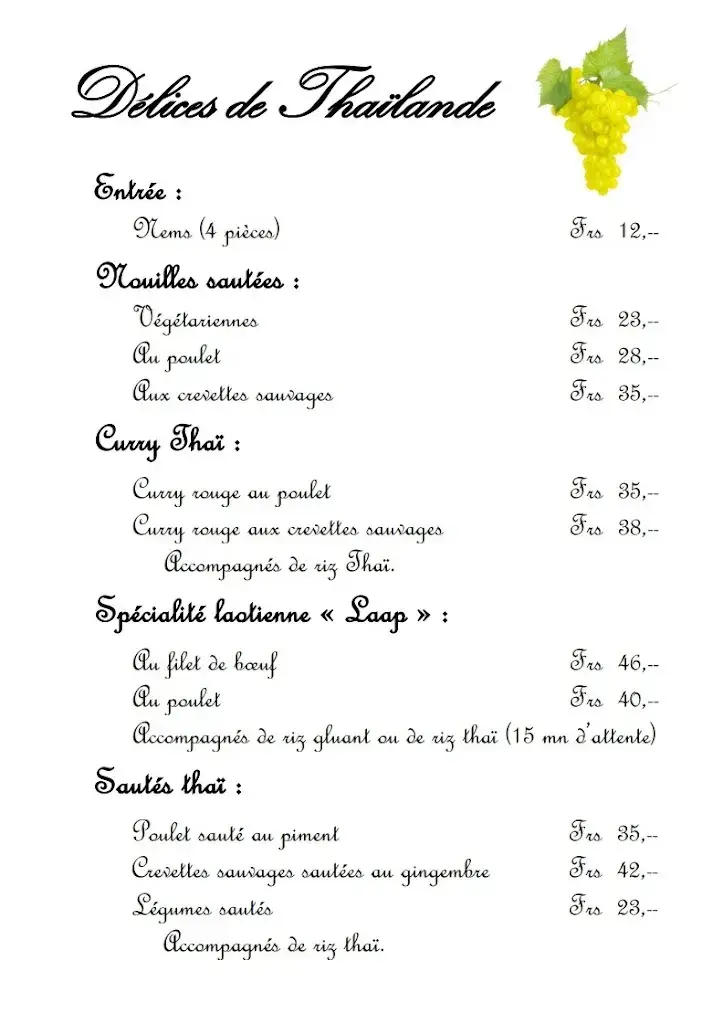 Délices de Thaïlande
Entrée :
Nems (4 pièces) Frs 12,--
Nouilles sautées :
Végétariennes Frs 23,--
Au poulet Frs 28,--
Aux crevettes sauvages Frs 35,--
Curry Thaï :
Curry rouge au poulet Frs 35,--
Curry rouge aux crevettes sauvages Frs 38,--
Accompagnés de riz Thaï.
Spécialité laotienne « Laap » :
Au filet de bœuf Frs 46,--
Au poulet Frs 40,--
Accompagnés de riz gluant ou de riz thaï (15 mn d'attente)
Sautés thaï :
Poulet sauté au piment Frs 35,--
Crevettes sauvages sautées au gingembre Frs 42,--
Légumes sautés Frs 23,--
Accompagnés de riz thaï.